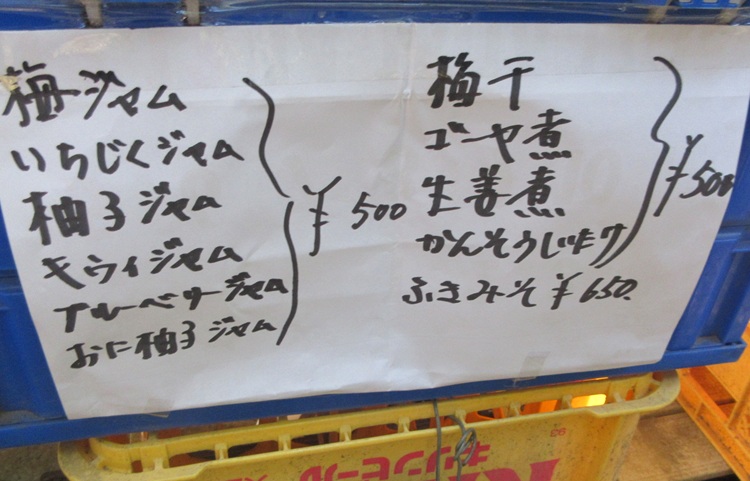 梅ジャム
いちじくジャム
柚子ジャム
キウイジャム
ブルーベリージャム
おに柚子ジャム
¥500
梅干
ゴーヤ煮
生姜煮
かんそうしいたけ
¥500
ふきみそ ¥650.
キリンビール